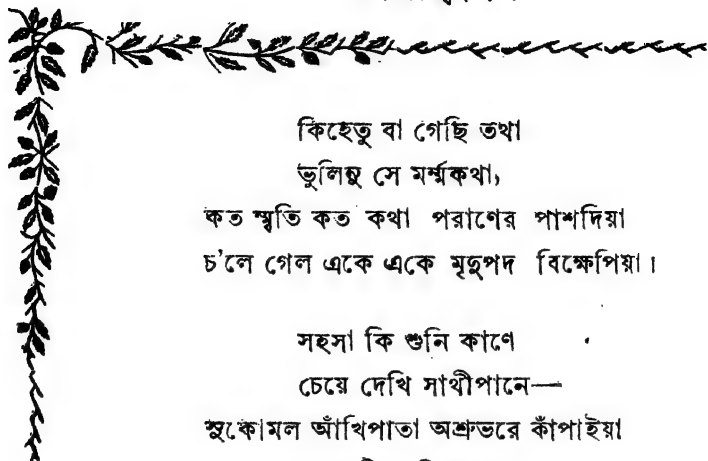 কিহেতু বা গেছি তথা
ভুলিনু সে মর্ম্মকথা,
কত স্মৃতি কত কথা পরাণের পাশদিয়া
চ'লে গেল একে একে মৃদুপদ বিক্ষেপিয়া।
সহসা কি শুনি কাণে
চেয়ে দেখি সাথীপানে—
সুকোমল আঁখিপাতা অশ্রুভরে কাঁপাইয়া